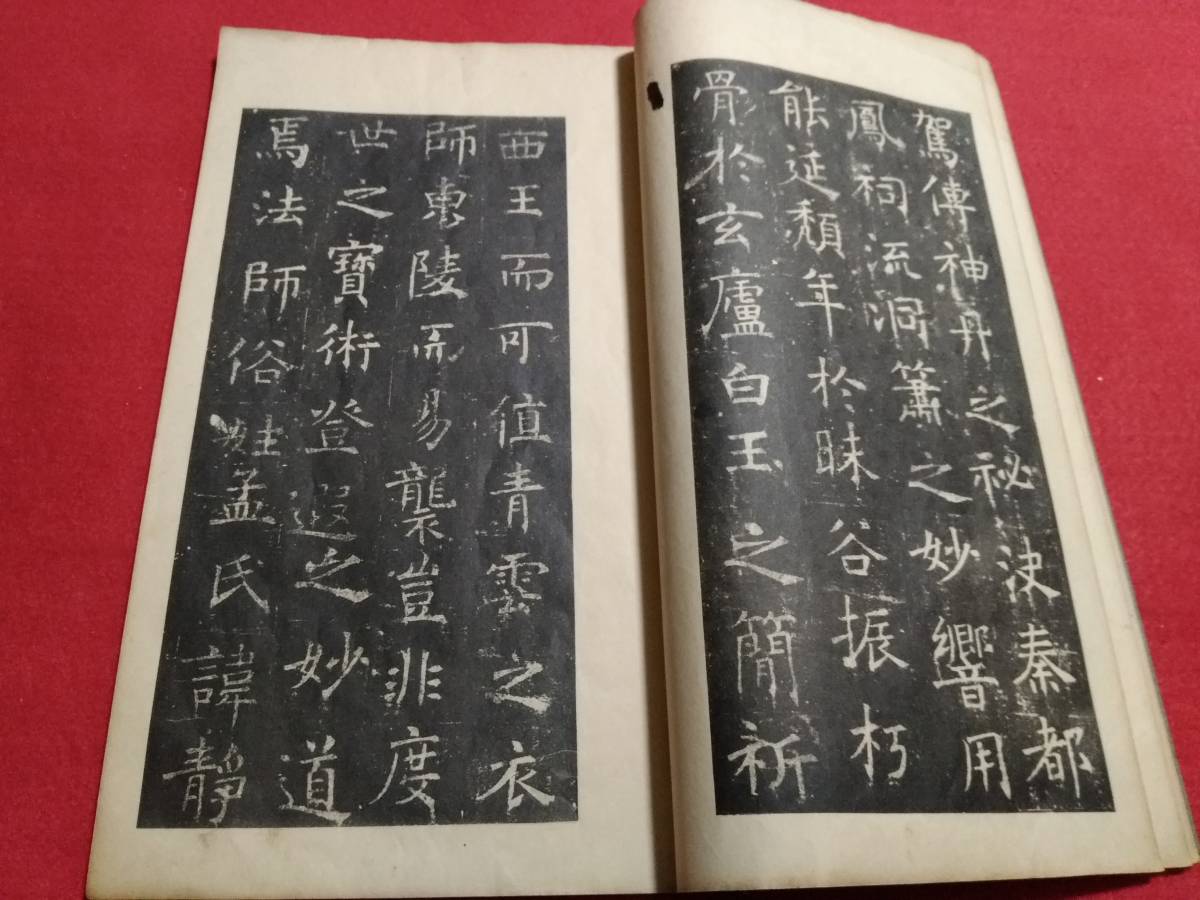 駕傅神丹之祕決秦都
鳳祠流洞簫之妙響用
能延頹年於昧谷振朽
骨於玄廬白玉之簡祈
西王而可值青雲之衣
師東陵而易襲豈非度
世之寶術登遐之妙道
焉法師俗姓孟氏諱靜